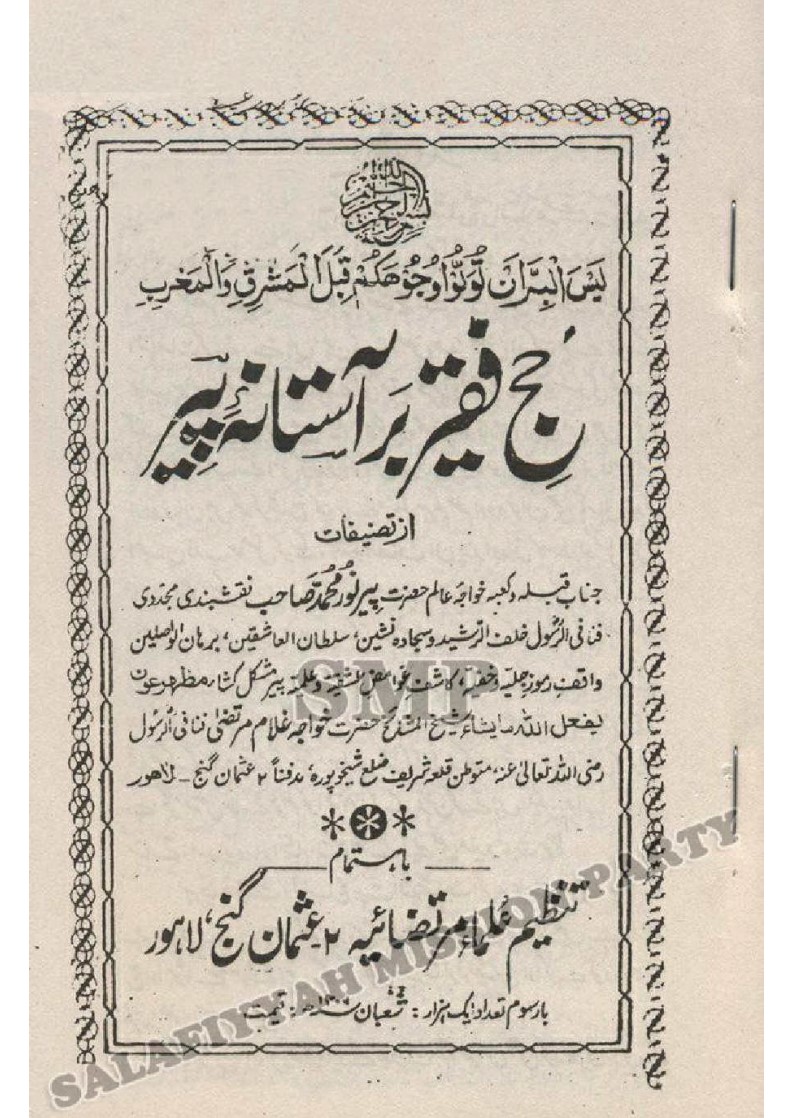 بسم الله الرحمن الرحيم
لَيْسَ الْبِرَّ اَنْ تُوَلُّوْا وُجُوْهَكُمْ قِبَلَ الْمَشْرِقِ وَالْمَغْرِبِ
حجِ فقیر بَر آستانہٴ پیر
از تصنیفات
جناب قبلہ و کعبہ خواجہ عالم حضرت پیر نُور محمدؐ صَاحب نقشبندی مجددی
فنا فی الرسُول خلف الرشید و سجادہ نشین، سلطان العاشقین، برہان الواصلین
واقفِ رموز جلیّہ و خفیہ، کاشف غوامض پیر مشکل کشاء مظہر عون
یفعل اللہ ما یشاء شیخ المشائخ حضرت خواجہ غلام مرتضٰی فنا فی الرسول
رضی اللہ تعالیٰ عنہ، متوطن قلعہ شریف ضلع شیخوپورہ، مدفناً ۲ عثمان گنج - لاہور
باہتمام
تنظیم عُلماء مرتضائیہ ۲۔ عثمان گنج، لاہور
بار سوم تعداد ایک ہزار : شعبان : قیمت
SMP
SALAFIYYAH MISSION PARTY